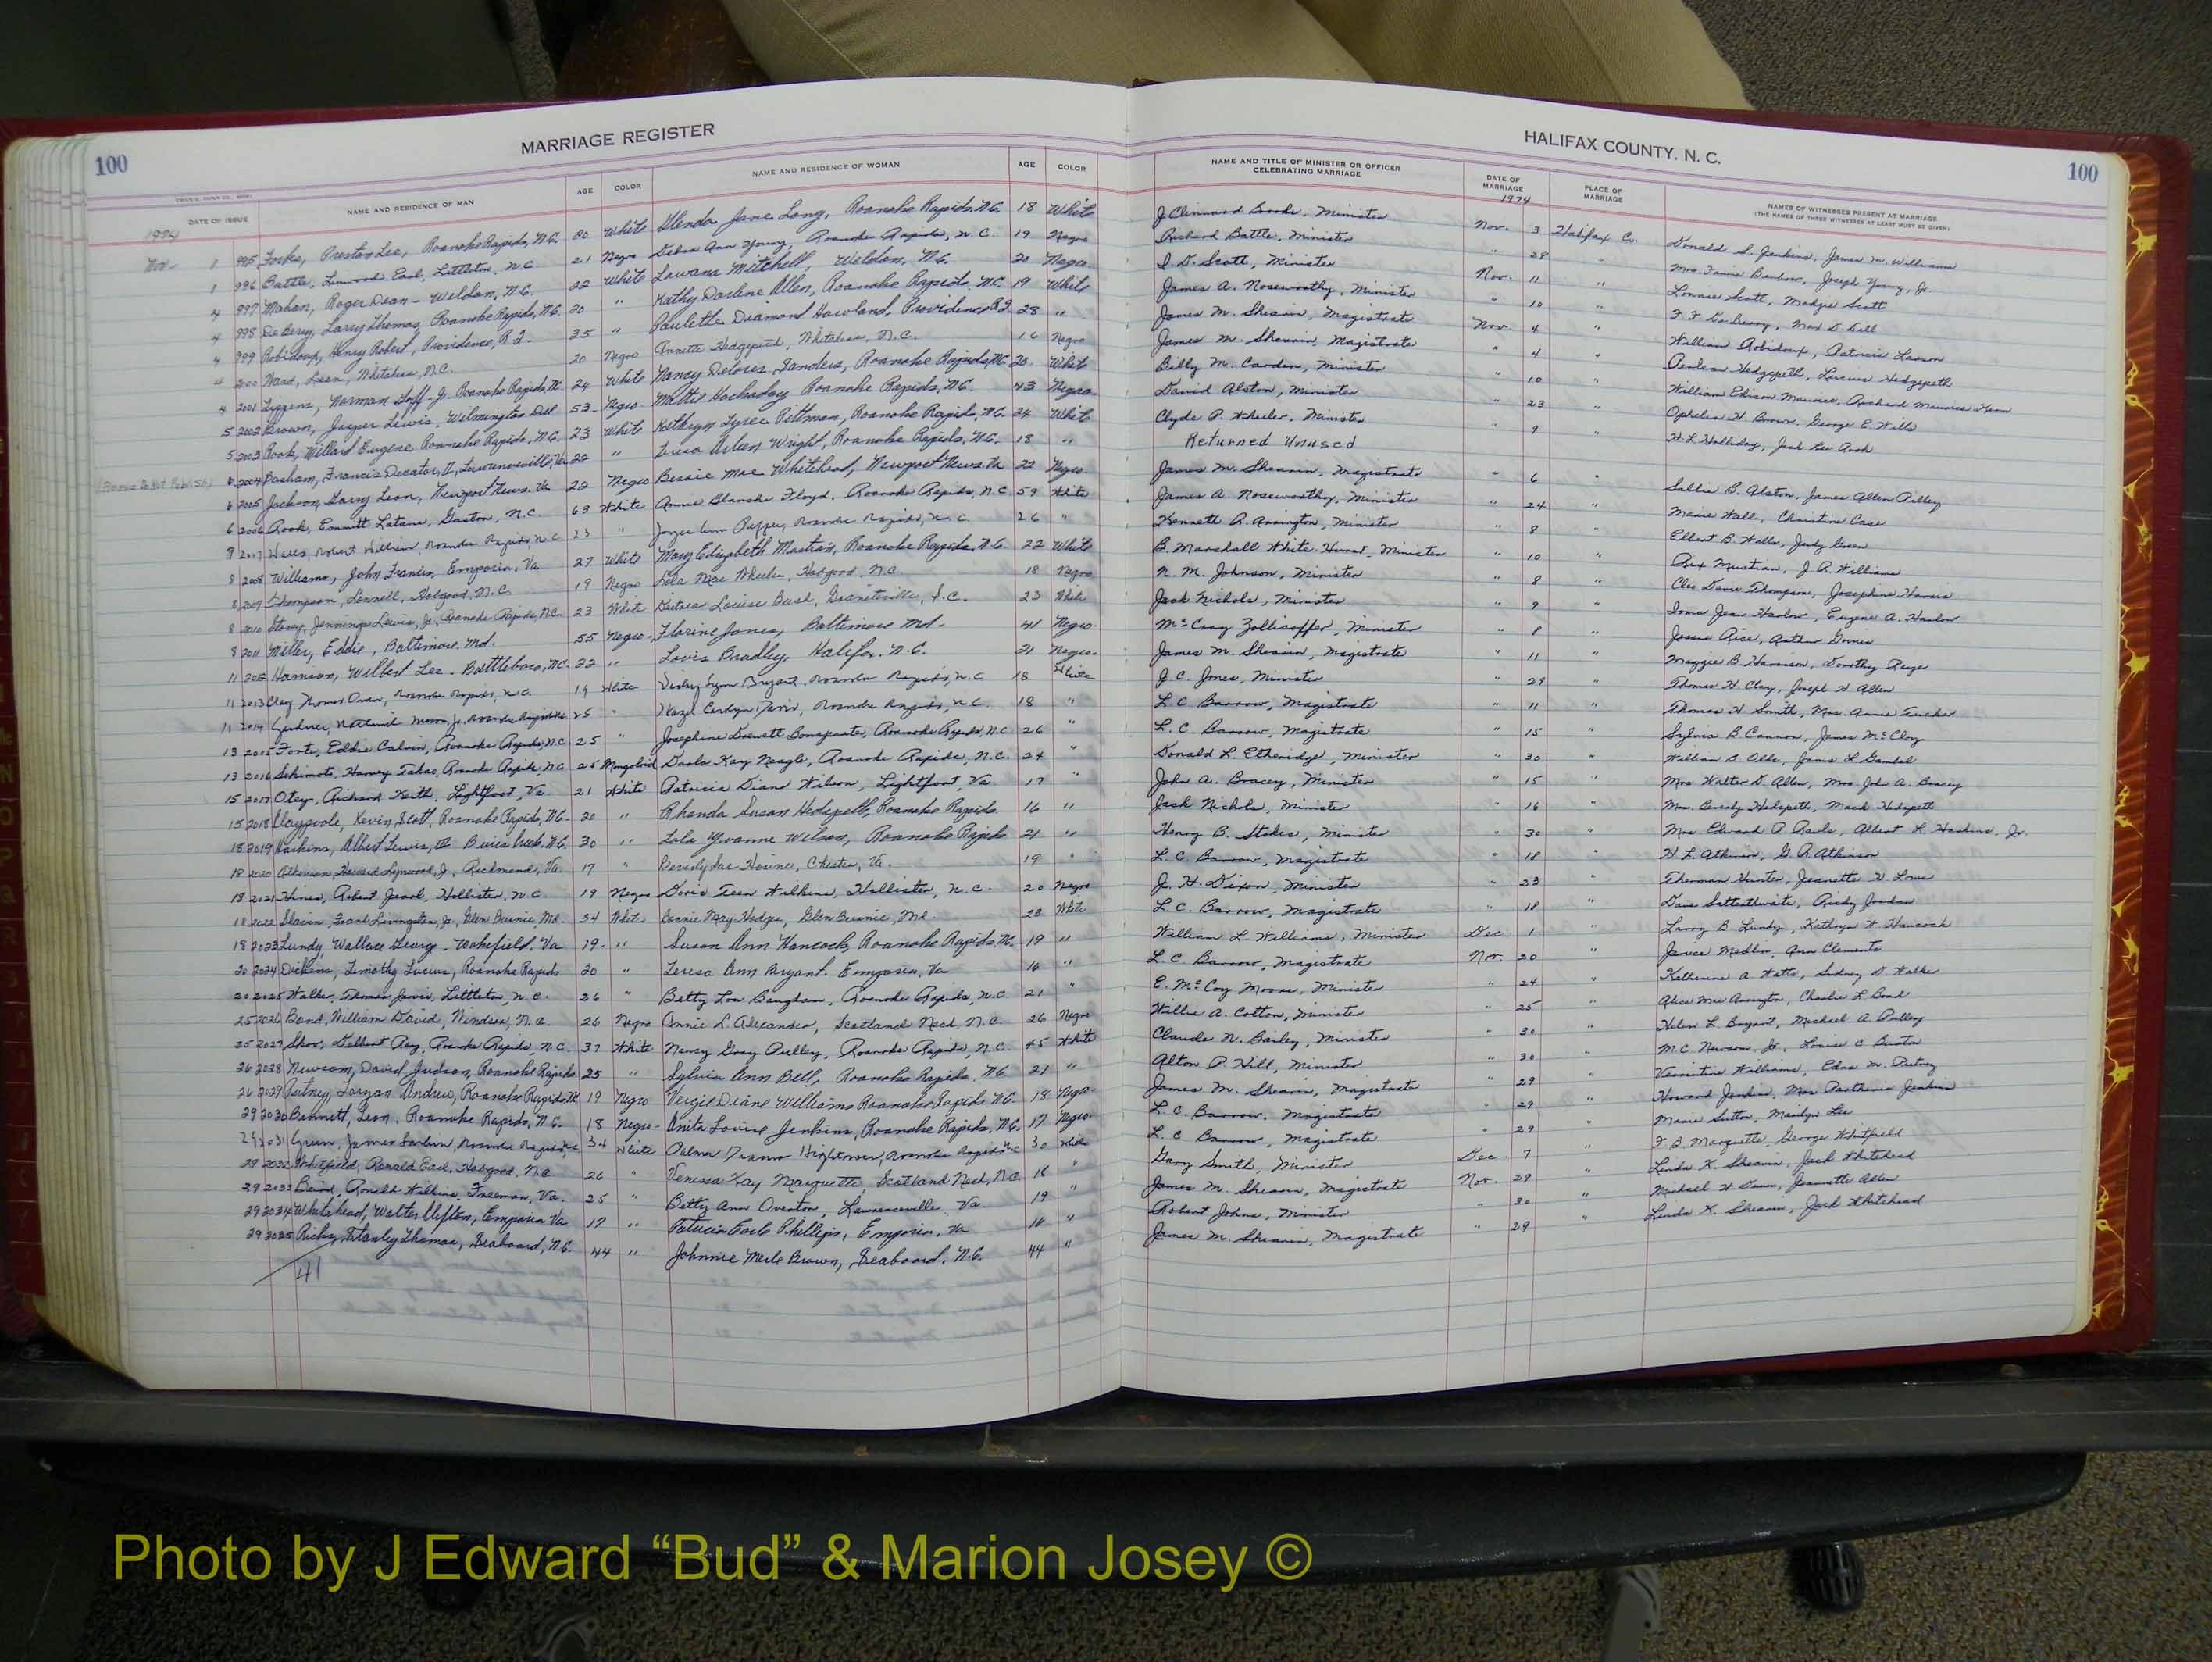 100
MARRIAGE REGISTER
DATE OF ISSUE NAME AND RESIDENCE OF MAN AGE COLOR NAME AND RESIDENCE OF WOMAN AGE COLOR
1974
Nov. 1 995 Preston Lee, Roanoke Rapids, N.C. White Glenda Jane Long, Roanoke Rapids, N.C. 18 White
1 996 Battle, Linwood Earl, Littleton, N.C. 21 Negro Debra Ann Young, Roanoke Rapids, N.C. 19 Negro
4 997 Mohan, Roger Dean - Weldon, N.C. 22 White Mitchell, Weldon, N.C. 20 Negro
4 998 DeBerry, Larry Thomas, Roanoke Rapids, N.C. 20 " Kathy Darlene Allen, Roanoke Rapids, N.C. 19 White
4 999 Robidoux, Henry Robert, Providence, R.I. 35 " Paulette Diamond Howland, Providence R.I. 28 "
4 2000 Ward, Leon, Whitakers, N.C. 20 Negro Annette Hedgepeth, Whitakers, N.C. 16 Negro
4 2001 Liggins, Norman Goff - Jr. Roanoke Rapids, N. 24 White Nancy Delores Sanders, Roanoke Rapids, N.C. 20 White
5 2002 Brown, Jasper Lewis, Wilmington Del 53 - Negro Mattie Hockaday Roanoke Rapids, N.C. 43 Negro
5 2003 Rook, Willard Eugene Roanoke Rapids, N.C. 23 White Kathryn Tyree Pittman, Roanoke Rapids, N.C. 24 White
6 2004 Parham, Francis Decatur, II, Lawrenceville, Va 22 " Wright, Roanoke Rapids, N.C. 18 "
6 2005 Jackson, Garry Leon, Newport News, Va 22 Negro Bessie Mae Whitehead, Newport News Va 22 Negro
6 2006 Rook, Emmitt Latane, Gaston, N.C. 63 White Annie Blanche Floyd, Roanoke Rapids, N.C 59 White
8 2007 Robert William, Roanoke Rapids, N.C 23 " Joyce Ann Pepper, Roanoke Rapids, N.C 26 "
8 2008 Williams, John Francis, Emporia, Va 27 White Mary Elizabeth Mustian, Roanoke Rapids, N.C. 22 White
8 2009 Thompson, Hobgood, N.C. 19 Negro Lola Mae Wheeler, Hobgood, N.C. 18 Negro
8 2010 Jennings Lewis, Jr, Roanoke Rapids, N.C. 23 White Louise Bush, S.C. 23 White
8 2011 Miller, Eddie, Baltimore, Md. 55 Negro - Florine Jones, Baltimore Md - 41 Negro
11 2012 Harrison, Wilbert Lee - Battleboro, N.C. 22 " Lovis Bradley, Halifax, N.C. 21 Negro -
11 2013 Clay, Thomas Owen, Roanoke Rapids, N.C. 19 White Lynn Bryant, Roanoke Rapids, N.C 18 White
11 2014 Gardner, Jr. Roanoke Rapids N.C 25 " Hazel Carolyn Roanoke Rapids, N.C. 18 "
13 2015 Forte, Eddie Calvin, Roanoke Rapids, N.C 25 " Josephine Dorsett Bonaparte, Roanoke Rapids, N.C 26 "
13 2016 Sekimoto, Harvey Takao, Roanoke Rapids, N.C 25 Mongoloid Darla Kay Neagle, Roanoke Rapids, N.C. 24 "
15 2017 Otey, Richard Keith, Lightfoot, Va 21 White Patricia Diane Wilson, Lightfoot, Va. 17 "
15 2018 Claypoole, Kevin Scott, Roanoke Rapids, N.C. - 20 " Rhonda Susan Hedgepeth, Roanoke Rapids. 16 "
18 2019 Haskins, Albert Lewis, III Buies Creek, N.C. 30 " Lola Yvonne Wilson, Roanoke Rapids 21 "
18 2020 Atkinson, Howard Lynwood, Jr, Richmond, Va. 17 " Beverly Sue Horne, Chester, Va. 19 "
18 2021 Hines, Robert Hollister, N.C. 19 Negro Doris Teen Wilkins, Hollister, N.C. 20 Negro
18 2022 Frank Livingston, Jr, Glen Burnie, Md. 34 White Bonnie May Hodges, Glen Burnie, Md 23 White
18 2023 Lundy, Wallace George - Wakefield, Va 19 - " Susan Ann Hancock, Roanoke Rapids, N. 19 "
20 2024 Dickens, Timothy Lucius, Roanoke Rapids 20 " Teresa Ann Bryant. Emporia, Va 16 "
20 2025 Walker, Thomas Jarvis, Littleton, N.C. 26 " Betty Lou Baugham, Roanoke Rapids, N.C 21 "
25 2026 Bond, William David, Windsor, N.C. 26 Negro Annie L. Alexander, Scotland Neck, N.C. 26 Negro
25 2027 Delbert Ray, Roanoke Rapids, N.C. 37 White Nancy Gray Pulley, Roanoke Rapids, N.C. 45 White
26 2028 Newsom, David Judson, Roanoke Rapids 25 " Sylvia Ann Bell, Roanoke Rapids, N.C. 21 "
26 2029 Putney, Tarzan Andrew, Roanoke Rapids 19 Negro Vergie Diane Williams Roanoke Rapids N.C. 18 Negro
29 2030 Bennett, Leon, Roanoke Rapids, N.C. 18 Negro - Anita Louise Jenkins, Roanoke Rapids, N.C. 17 Negro
29 2031 Green, James Roanoke Rapids, N.C 34 White Hightower, Roanoke Rapids, N.C 30 White
29 2032 Whitfield, Ronald Earl, Hobgood, N.C 26 " Kay Marquette, Scotland Neck, N.C 18 "
29 2033 Baird, Ronald Wilkins, Freeman, Va. 25 " Betty Ann Overton, Lawrenceville, Va 19 "
29 2034 Whitehead, Walter Clifton, Emporia Va 17 " Patricia Phillips, Emporia, Va "
29 2035 Ricks, Stanley Thomas, Seaboard, N.C. 44 " Johnnie Merle Brown, Seaboard, N.C. 44 "
41
HALIFAX COUNTY, N. C.
100
NAME AND TITLE OF MINISTER OR OFFICER CELEBRATING MARRIAGE DATE OF MARRIAGE PLACE OF MARRIAGE NAMES OF WITNESSES PRESENT AT MARRIAGE
(THE NAMES OF THREE WITNESSES AT LEAST MUST BE GIVEN)
1974
J Clinnard Brooks, Minister Nov. 3 Halifax Co. Donald S. Jenkins, James M. Williams
Richard Battle, Minister " 28 " Mrs. Fannie Benbow, Joseph Young, Jr.
I. D. Scott, Minister Nov. 11 " Lonnie Scott, Madgie Scott
James A. Noseworthy, Minister " 10 " F F DeBerry, Dill
James M. Shearin, Magistrate Nov. 4 " William Robidoux, Patricia Lawson
James M. Shearin Magistrate " 4 " Hedgepeth, Hedgepeth
Billy M. Carden, Minister " 10 William Edison
David Alston, Minister " 23 " Ophelia H. Brown, George E. Wills
Clyde P. Wheeler, Minister " 9 " H. L. Holliday, Jack Lee Rook
Returned Unused
James M. Shearin, Magistrate " 6 " Sallie B. Alston, James Allen Pulley
James A. Noseworthy, Minister " 24 " Marie Hall, Christine Case
Kenneth R. Arrington, Minister " 8 " Elbert B. Judy
B. Marshall White Hurst, Minister " 10 " Rex Mustian, J. R. Williams
N. M. Johnson, Minister " 8 " Cleo Davis Thompson, Josephine Harris
Jack Nichols, Minister " 9 " Jean Harlow, Eugene A. Harlow
McCoy Zollicoffer, Minister " 8 " Rice,
James M. Shearin, Magistrate " 11 " Maggie B. Harrison, Dorothy
J. C. Jones, Minister " 29 " Thomas H. Clay, Joseph H Allen
L C Barrow, Magistrate " 11 " Thomas H Smith, Mrs. Annie Tucker
L. C. Barrow, Magistrate " 15 " Sylvia B. Cannon, James McCloy
Donald L. Etheridge, Minister " 30 "
John A. Bracey, Minister " 15 " Mrs Walter D. Allen, Mrs. John A. Bracey
Jack Nichols, Minister " 16 " Mrs. Beverly Hedgepeth, Mack Hedgepeth
Henry B. Stokes, Minister " 30 " Mrs. Edward P. Albert L Haskins, Jr.
L. C. Barrow, Magistrate " 18 " H L. Atkinson, G. R. Atkinson
J. H. Dixon, Minister " 23 " Therman Hunter, Jeanette H
L. C. Barrow, Magistrate " 18 " Dave Satterthwaite, Ricky Jordan
William L. Williams, Minister Dec 1 " Larry B. Lundy, Kathryn H. Hancock
L. C Barrow, Magistrate Nov. 20 " Janice Medlin, Ann Clements
E. McCoy Moore, Minister " 24 " Katherine A. Watts, Sidney D.
Willie A. Cotton, Minister " 25 " Alice Mae Arrington, Charlie L. Bond
Claude N. Bailey, Minister " 30 " Helen L. Bryant, Michael A. Pulley
Alton P. Hill, Minister " 30 " M. C. Newsom, Jr, Louise C
James M. Shearin, Magistrate " 29 " Williams, Edna M. Putney
L. C. Barrow, Magistrate " 29 " Howard Jenkins, Mrs Jenkins
L. C Barrow, Magistrate " 29 Marie Sutton, Marilyn Lee
Gary Smith, Minister Dec. 7 " F. B. Marquette, George Whitfield
James M. Shearin, Magistrate Nov. 29 " Linda K. Shearin, Jack Whitehead
Robert Johns, Minister " 30 " Michael H Jeannette Allen
James M. Shearin, Magistrate " 29 " Linda K. Shearin, Jack Whitehead
Photo by J Edward “Bud” & Marion Josey ©